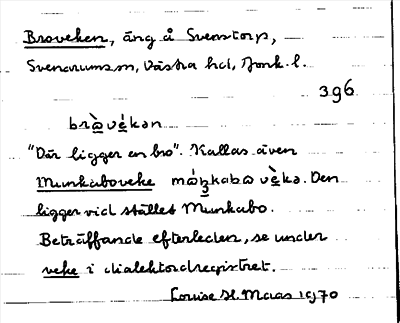 Broveken, äng å Svenstorp,
Svenarums sn, Västra hd, Jönk. l.
396
brὼvé̱kən
"Där ligger en bro". Kallas även
Munkaboveke móŋkabω vè̱kə. Den
ligger vid stället Munkabo.
Beträffande efterleden, se under
veke i dialektordregistret.
Louise H. Maas 1970